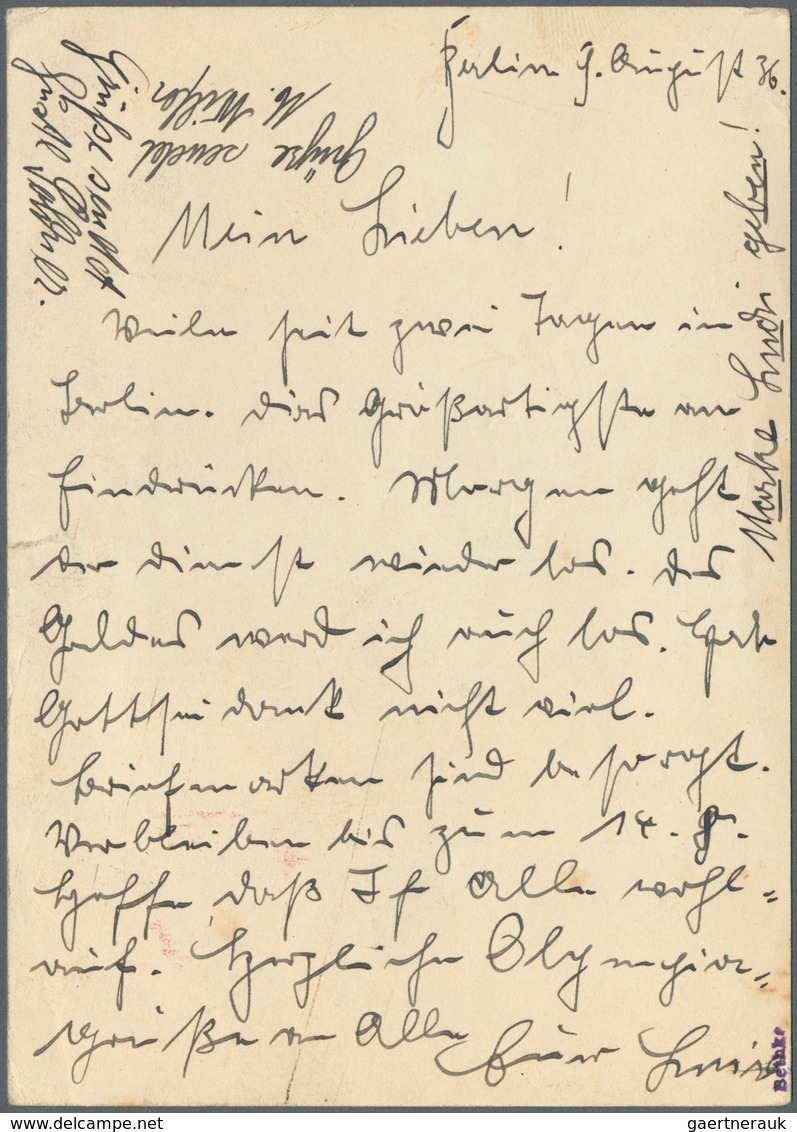 Berlin 9. August 36.
Grüße sendet
Grüße sendet
Mein Lieben!
Weile seit zwei Tagen in
Berlin. Das Großartigste an
Eindrücken. Morgen geht
der Dienst wieder los. Des
Geldes werd ich auch los. Habe
Gottseidank nicht viel.
Briefmarken sind besorgt.
Verbleiben bis zum 14. 8.
Hoffe, daß Ihr Alle wohl-
auf. Herzliche Olympia-
Grüße an Alle
Euer
Marke geben!
Bethke
gaertnerauk